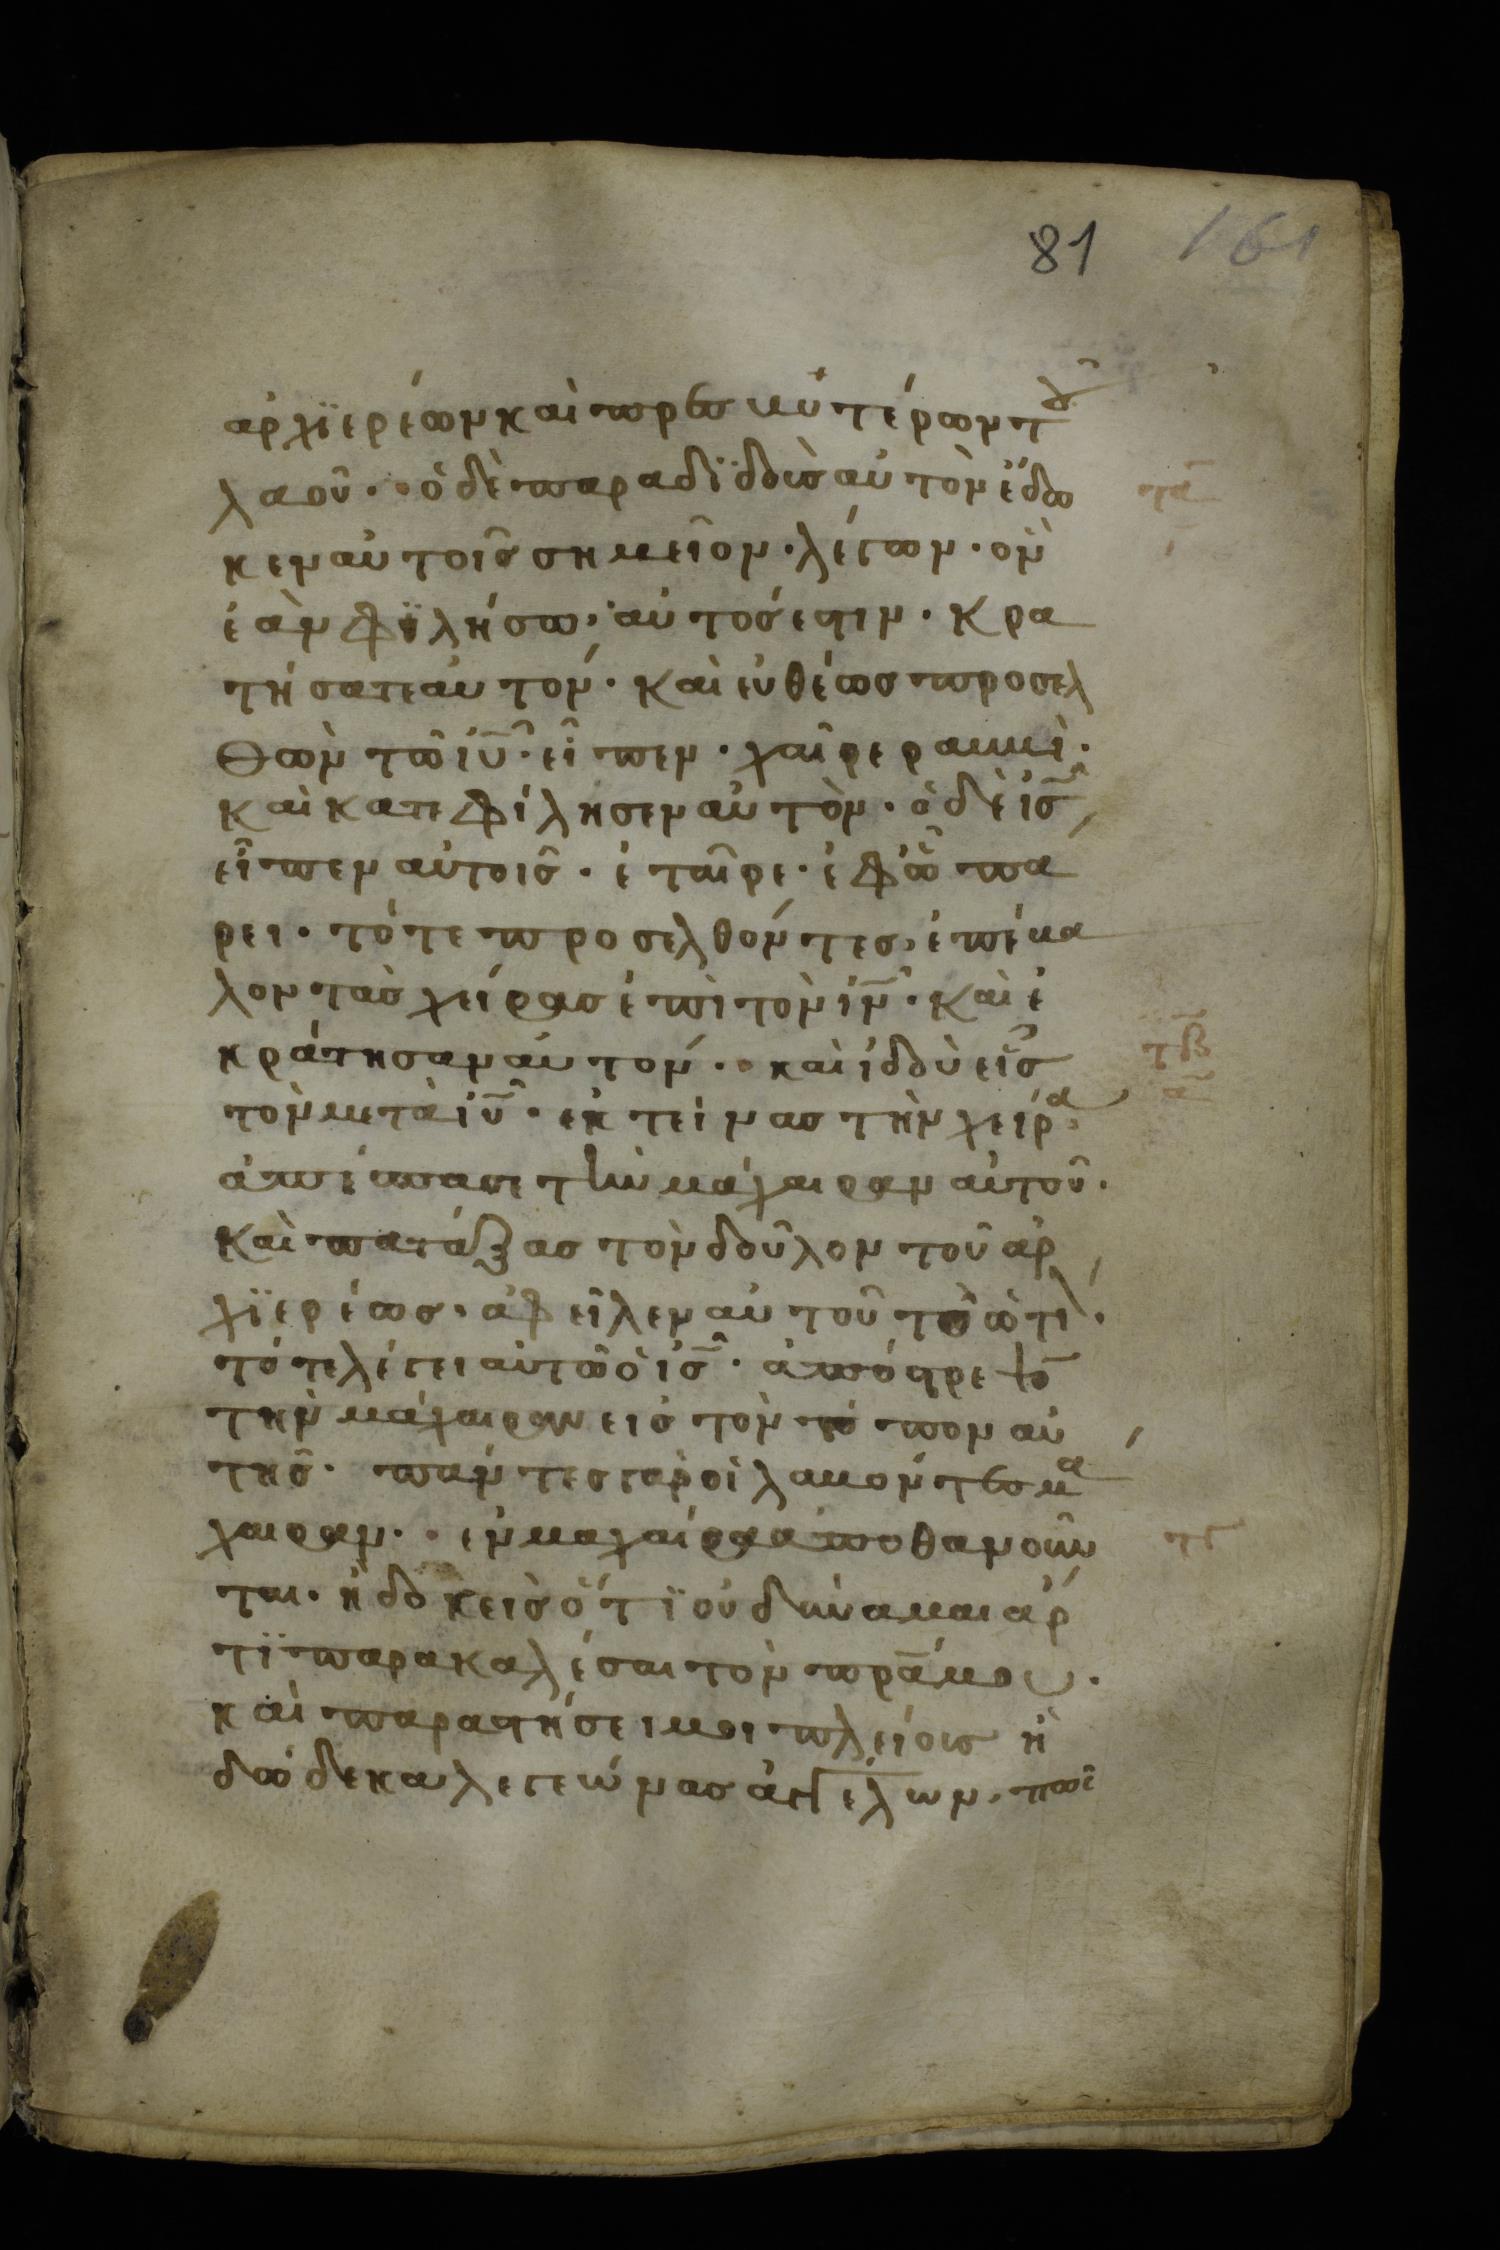 81 161
ἀρχϊερέων καὶ πρεσβυτέρων τοῦ
λαοῦ· ὁ δὲ παραδϊδοὺσ αὐτὸν ἔδω τα
κεν αὐτοῖσ σημεῖον· λέγων· ὃν
ἐὰν φϊλήσω, αὐτόσ ἐστιν· κρα
τήσατε αὐτόν· καὶ εὐθέωσ προσελ
θὼν τῶ ἰυ̅· εἶπεν· χαῖρε ραββὶ·
καὶ κατεφίλησεν αὐτὸν· ὁ δὲ ἰσ̅
εἶπεν αὐτοῖσ· ἑταῖρε· ἐφ ὧ πα
ρει· τότε προσελθόντεσ, ἐπέβα
λον τὰσ χείρασ ἐπὶ τὸν ἰν̅· καὶ ἐ
κράτησαν αὐτόν· καὶ ἰδοὺ εἷσ τβ
τὸν μετὰ ἰυ̅· ἐκτείνασ τὴν χείρα,
ἀπέσπασε τὴν μάχαιραν αὐτοῦ·
καὶ πατάξασ τὸν δοῦλον τοῦ ἀρ
χϊερέωσ· ἀφεῖλεν αὐτοῦ τὸ ὠτί·
τότε λέγει αὐτῶ ὁ ἰσ̅· ἀπόστρεψον
τὴν μάχαιραν εἰσ τὸν τόπον αὐ
τῆσ· πάντεσ γὰρ οἱ λαβόντεσ μα
χαιραν· ἐν μαχαίρα ἀποθανοῦν τγ
ται· ἢ δοκεῖσ ὅτϊ οὐ δύναμαι ἄρ
τϊ παρακαλέσαι τὸν πρ̅α μου·
καὶ παραστήσει μοι πλείουσ ἢ
δώδεκα λεγεώνασ ἀγγέλων· πῶσ